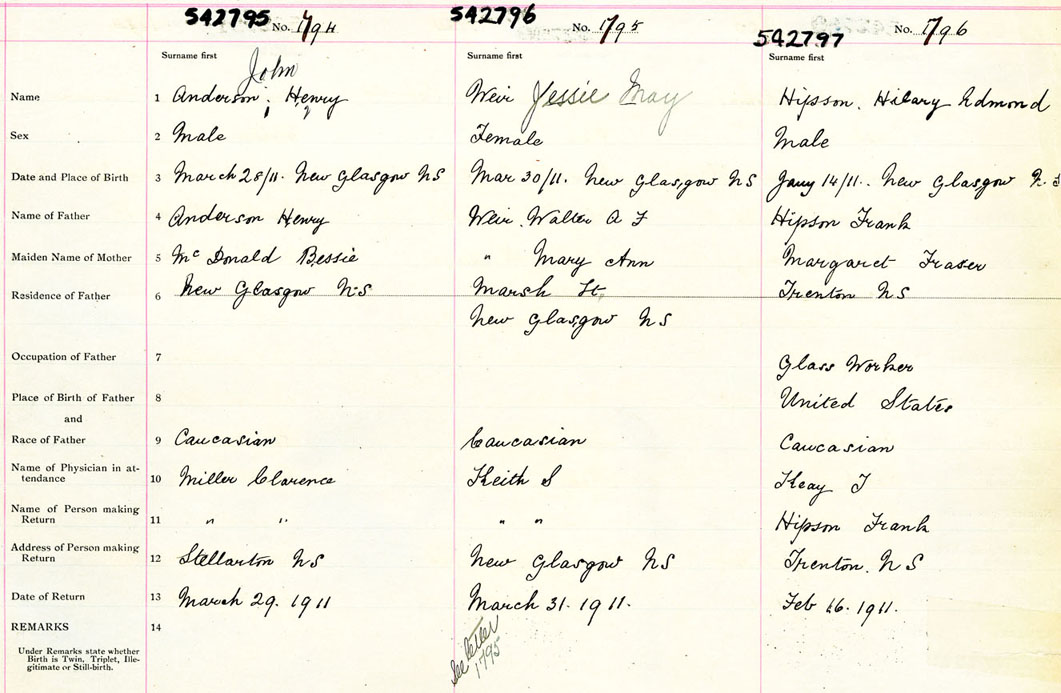 542795 No. 1794 542796 No. 1795 542797 No. 1796
Surname first Surname first Surname first
John
Name 1 Anderson, Henry Weir Jessie May Hipson. Hilary Edmond
Sex 2 Male Female Male
Date and Place of Birth 3 March 28/11. New Glasgow NS Mar 30/11. New Glasgow NS Jany 14/11.. New Glasgow N.S
Name of Father 4 Anderson Henry Weir. Walter A F Hipson Frank
Maiden Name of Mother 5 Mc Donald Bessie " Mary Ann Margaret Fraser
Residence of Father 6 New Glasgow NS Marsh St. Trenton NS
New Glasgow NS
Occupation of Father 7 Glass Worker
Place of Birth of Father 8 United States
and
Race of Father 9 Caucasian Caucasian Caucasian
Name of Physician in at-
tendance 10 Miller Clarence Keith S Keay T
Name of Person making
Return 11 " " " " Hipson Frank
Address of Person making
Return 12 Stellarton NS New Glasgow NS Trenton. NS
Date of Return 13 March 29. 1911 March 31. 1911. Feb 16. 1911.
REMARKS 14
Under Remarks state whether
Birth is Twin, Triplet, Ille-
gitimate or Still-birth.
See Letter
1795